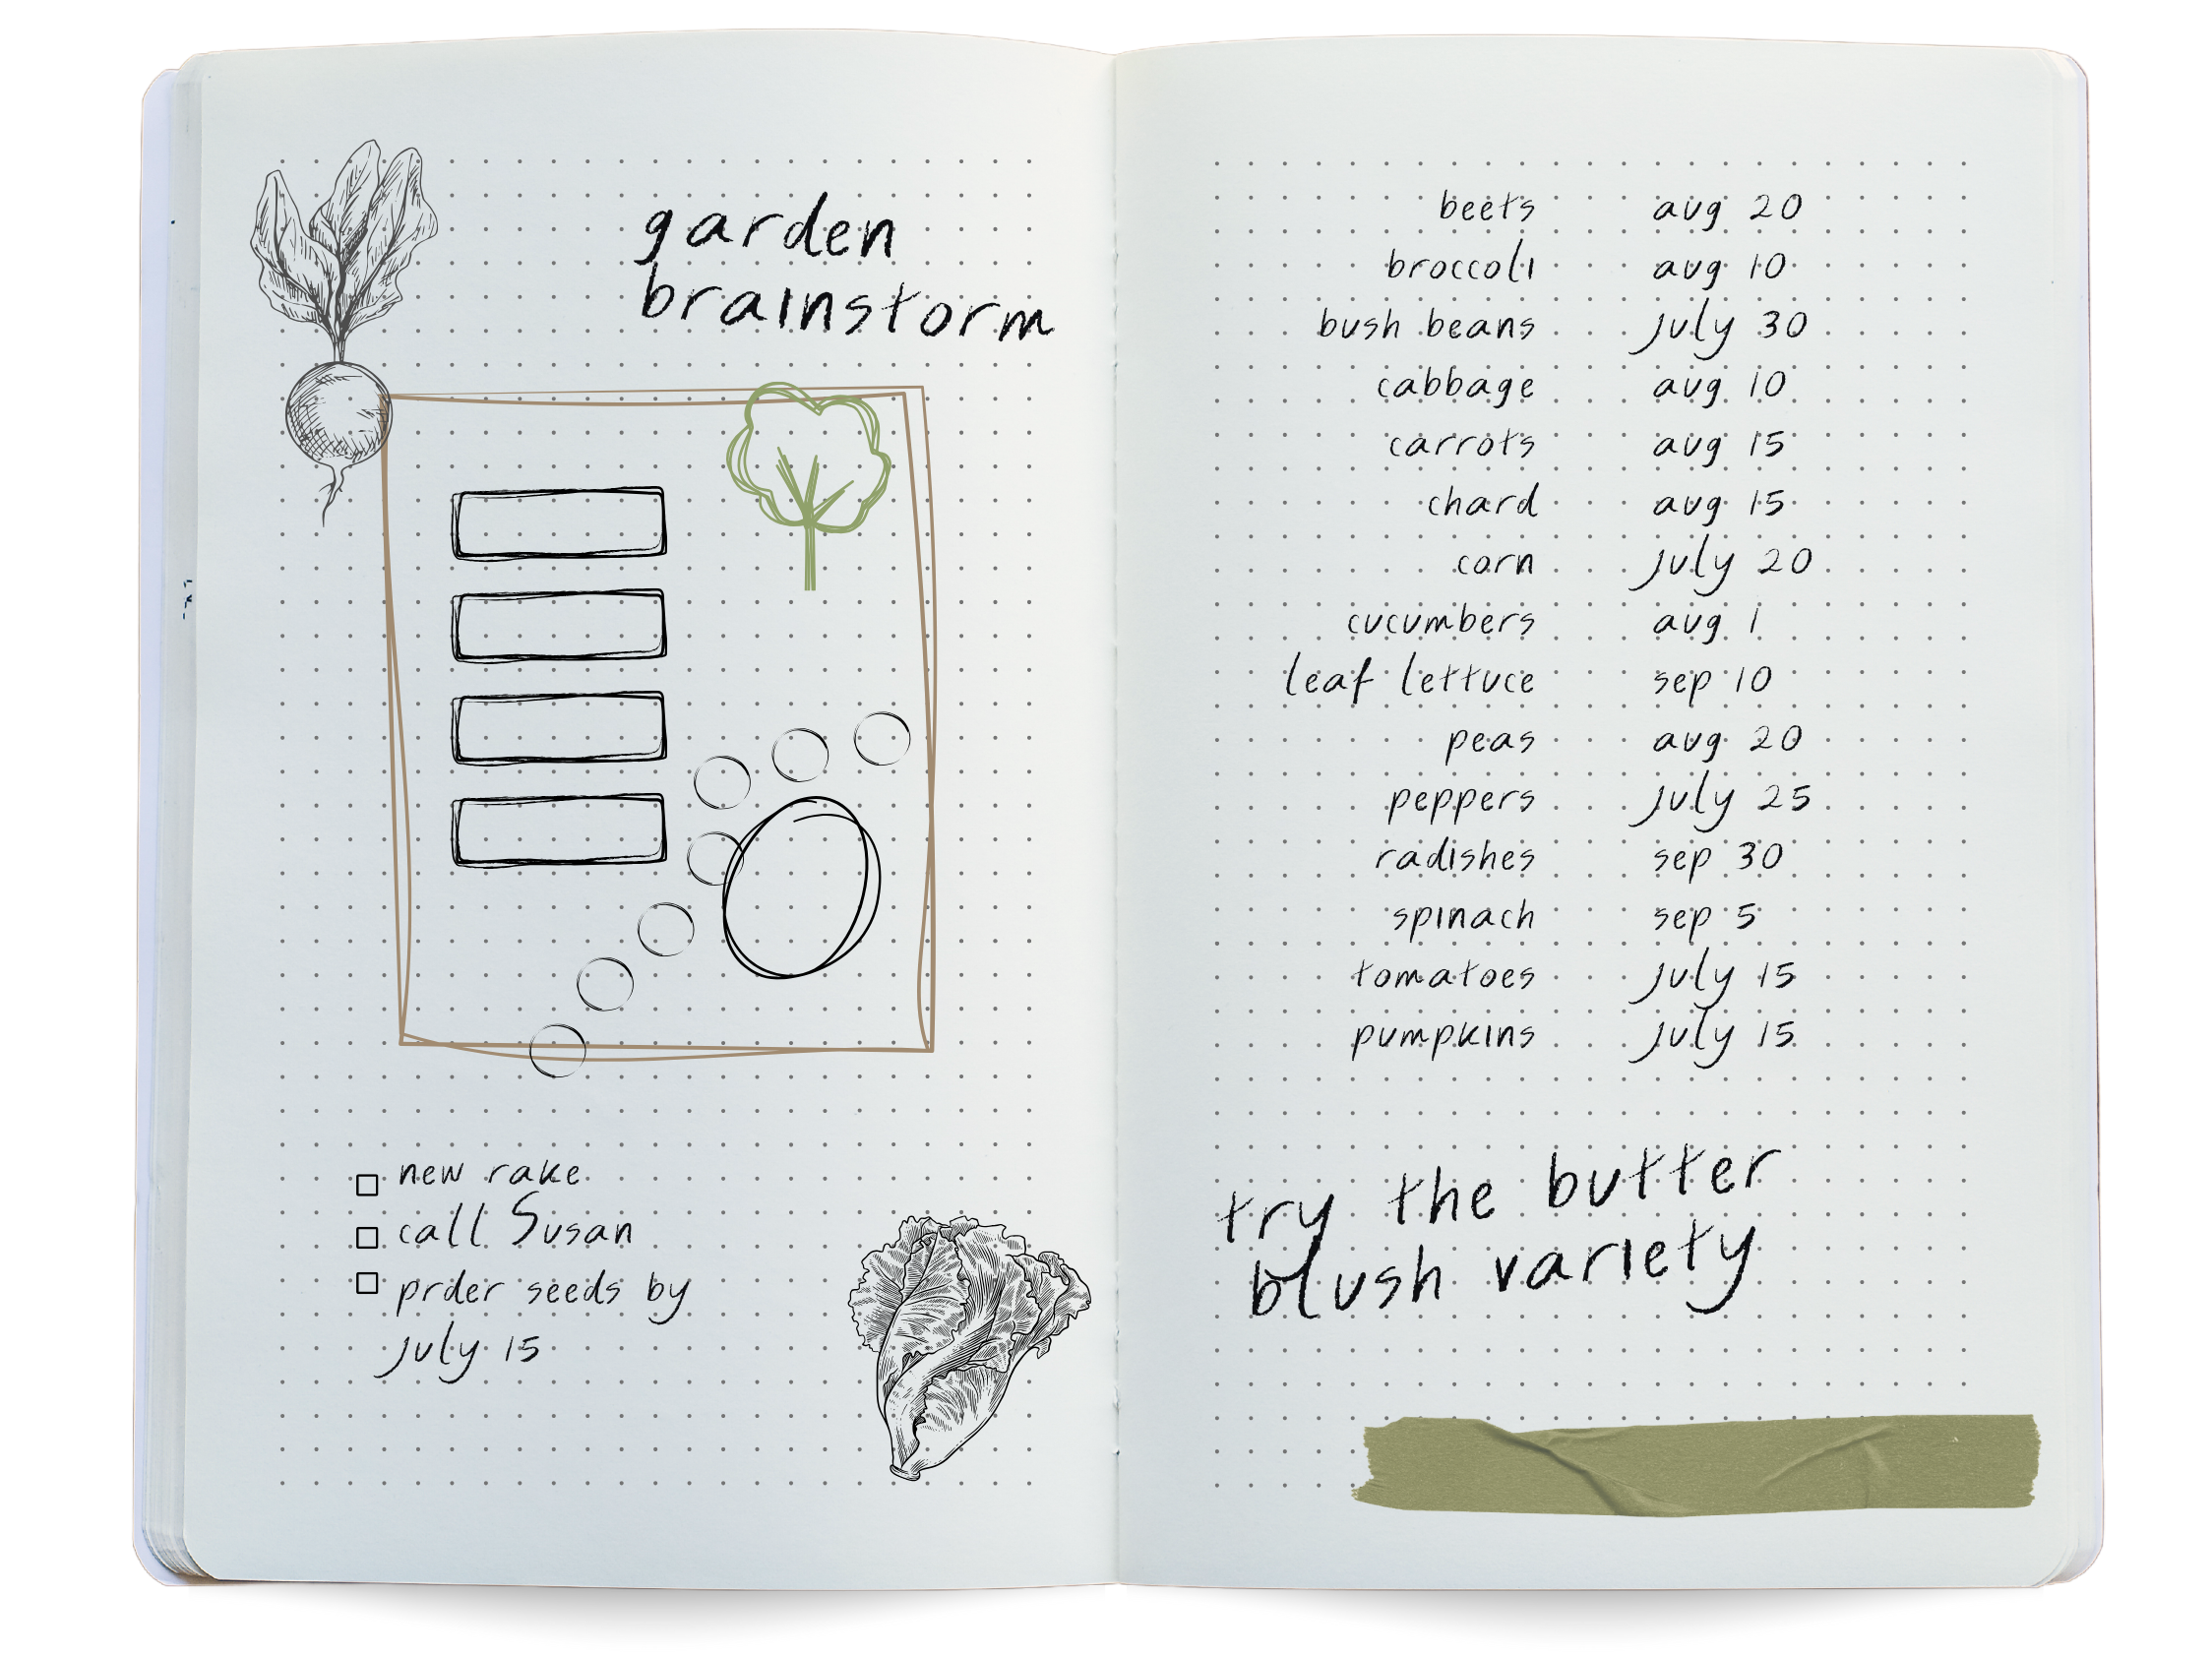 garden
brainstorm
new rake
call Susan
prder seeds by
july 15
beets aug 20
broccoli aug 10
bush beans july 30
cabbage aug 10
carrots aug 15
chard aug 15
corn july 20
cucumbers aug 1
leaf lettuce sep 10
peas aug 20
peppers july 25
radishes sep 30
spinach sep 5
tomatoes july 15
pumpkins july 15
try the butter
blush variety